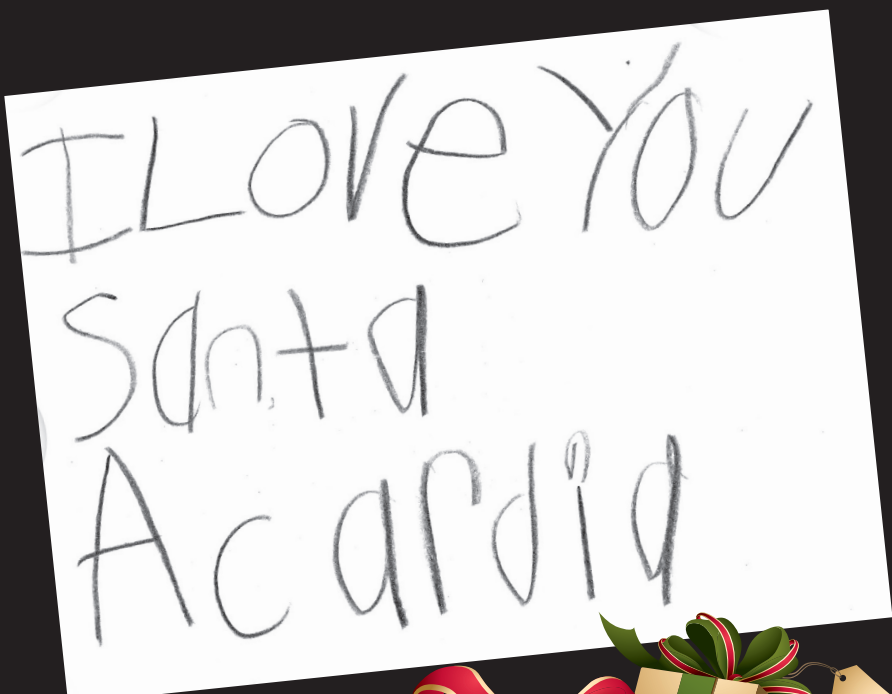 I Love You
Santa
Acardia